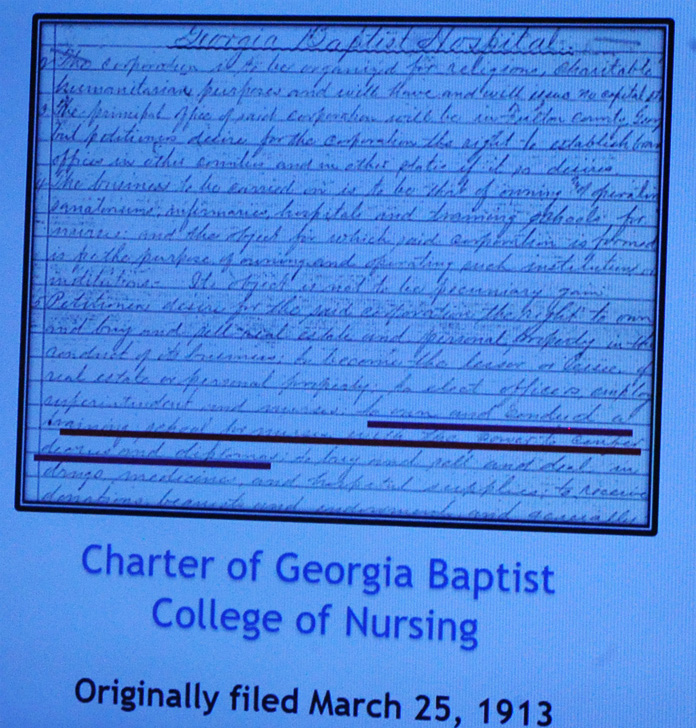 Georgia Baptist Hospital.
2 The corporation is to be organized for religious, charitable
humanitarian purposes and will have and will issue no capital st
3. The principal office of said corporation will be in Fulton County, Geor
but petitioners desire for the corporation the right to establish bran
offices in other counties and in other states if it so desires.
4 The business to be carried on is to be that of owning & operatin
sanatoriums, infirmaries, hospitals and training schools for
nurses; and the object for which said corporation is formed
is for the purpose of owning and operating such institutions
institutions. Its object is not to be pecuniary gain.
5 Petitioners desire for the said corporation the right to own
and buy and sell real estate and personal property in the
conduct of its business; to become the lessor or lessee of
real estate or personal property; to elect officers, employ
superintendent and nurses; to own and conduct a
training school for nurses with the power to confer
degrees and diplomas; to buy and sell and deal in
drugs, medicines, and hospital supplies; to receive
donations, bequests and endowments and generally
Charter of Georgia Baptist
College of Nursing
Originally filed March 25, 1913